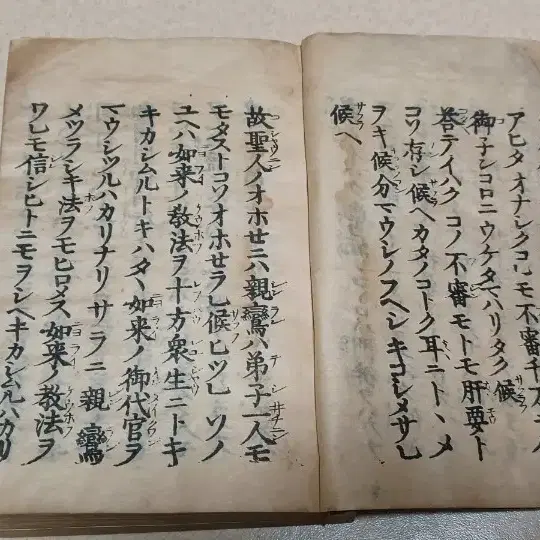 アヒタオナシクコレモ不審千万ニ
御子ンコロニウケタマハリタク候
答テイハクコノ不審モトモ肝要ト
コソ存シ候ヘカタノコトク耳ニトヽメ
ヲキ候分マウシノフヘシキコシメサレ
候ヘ
故聖人ノオホセニハ親鸞ハ弟子一人モ
モタストコソオホセラレ候ヒツレソノ
ユヘハ如来ノ教法ヲ十方衆生ニトキ
キカシムルトキハタヽ如来ノ御代官ヲ
マウシツルハカリナリサラニ親鸞
メツラシキ法ヲモヒロメス如来ノ教法ヲ
ワレモ信シヒトニモヲシヘキカシムルハカリ